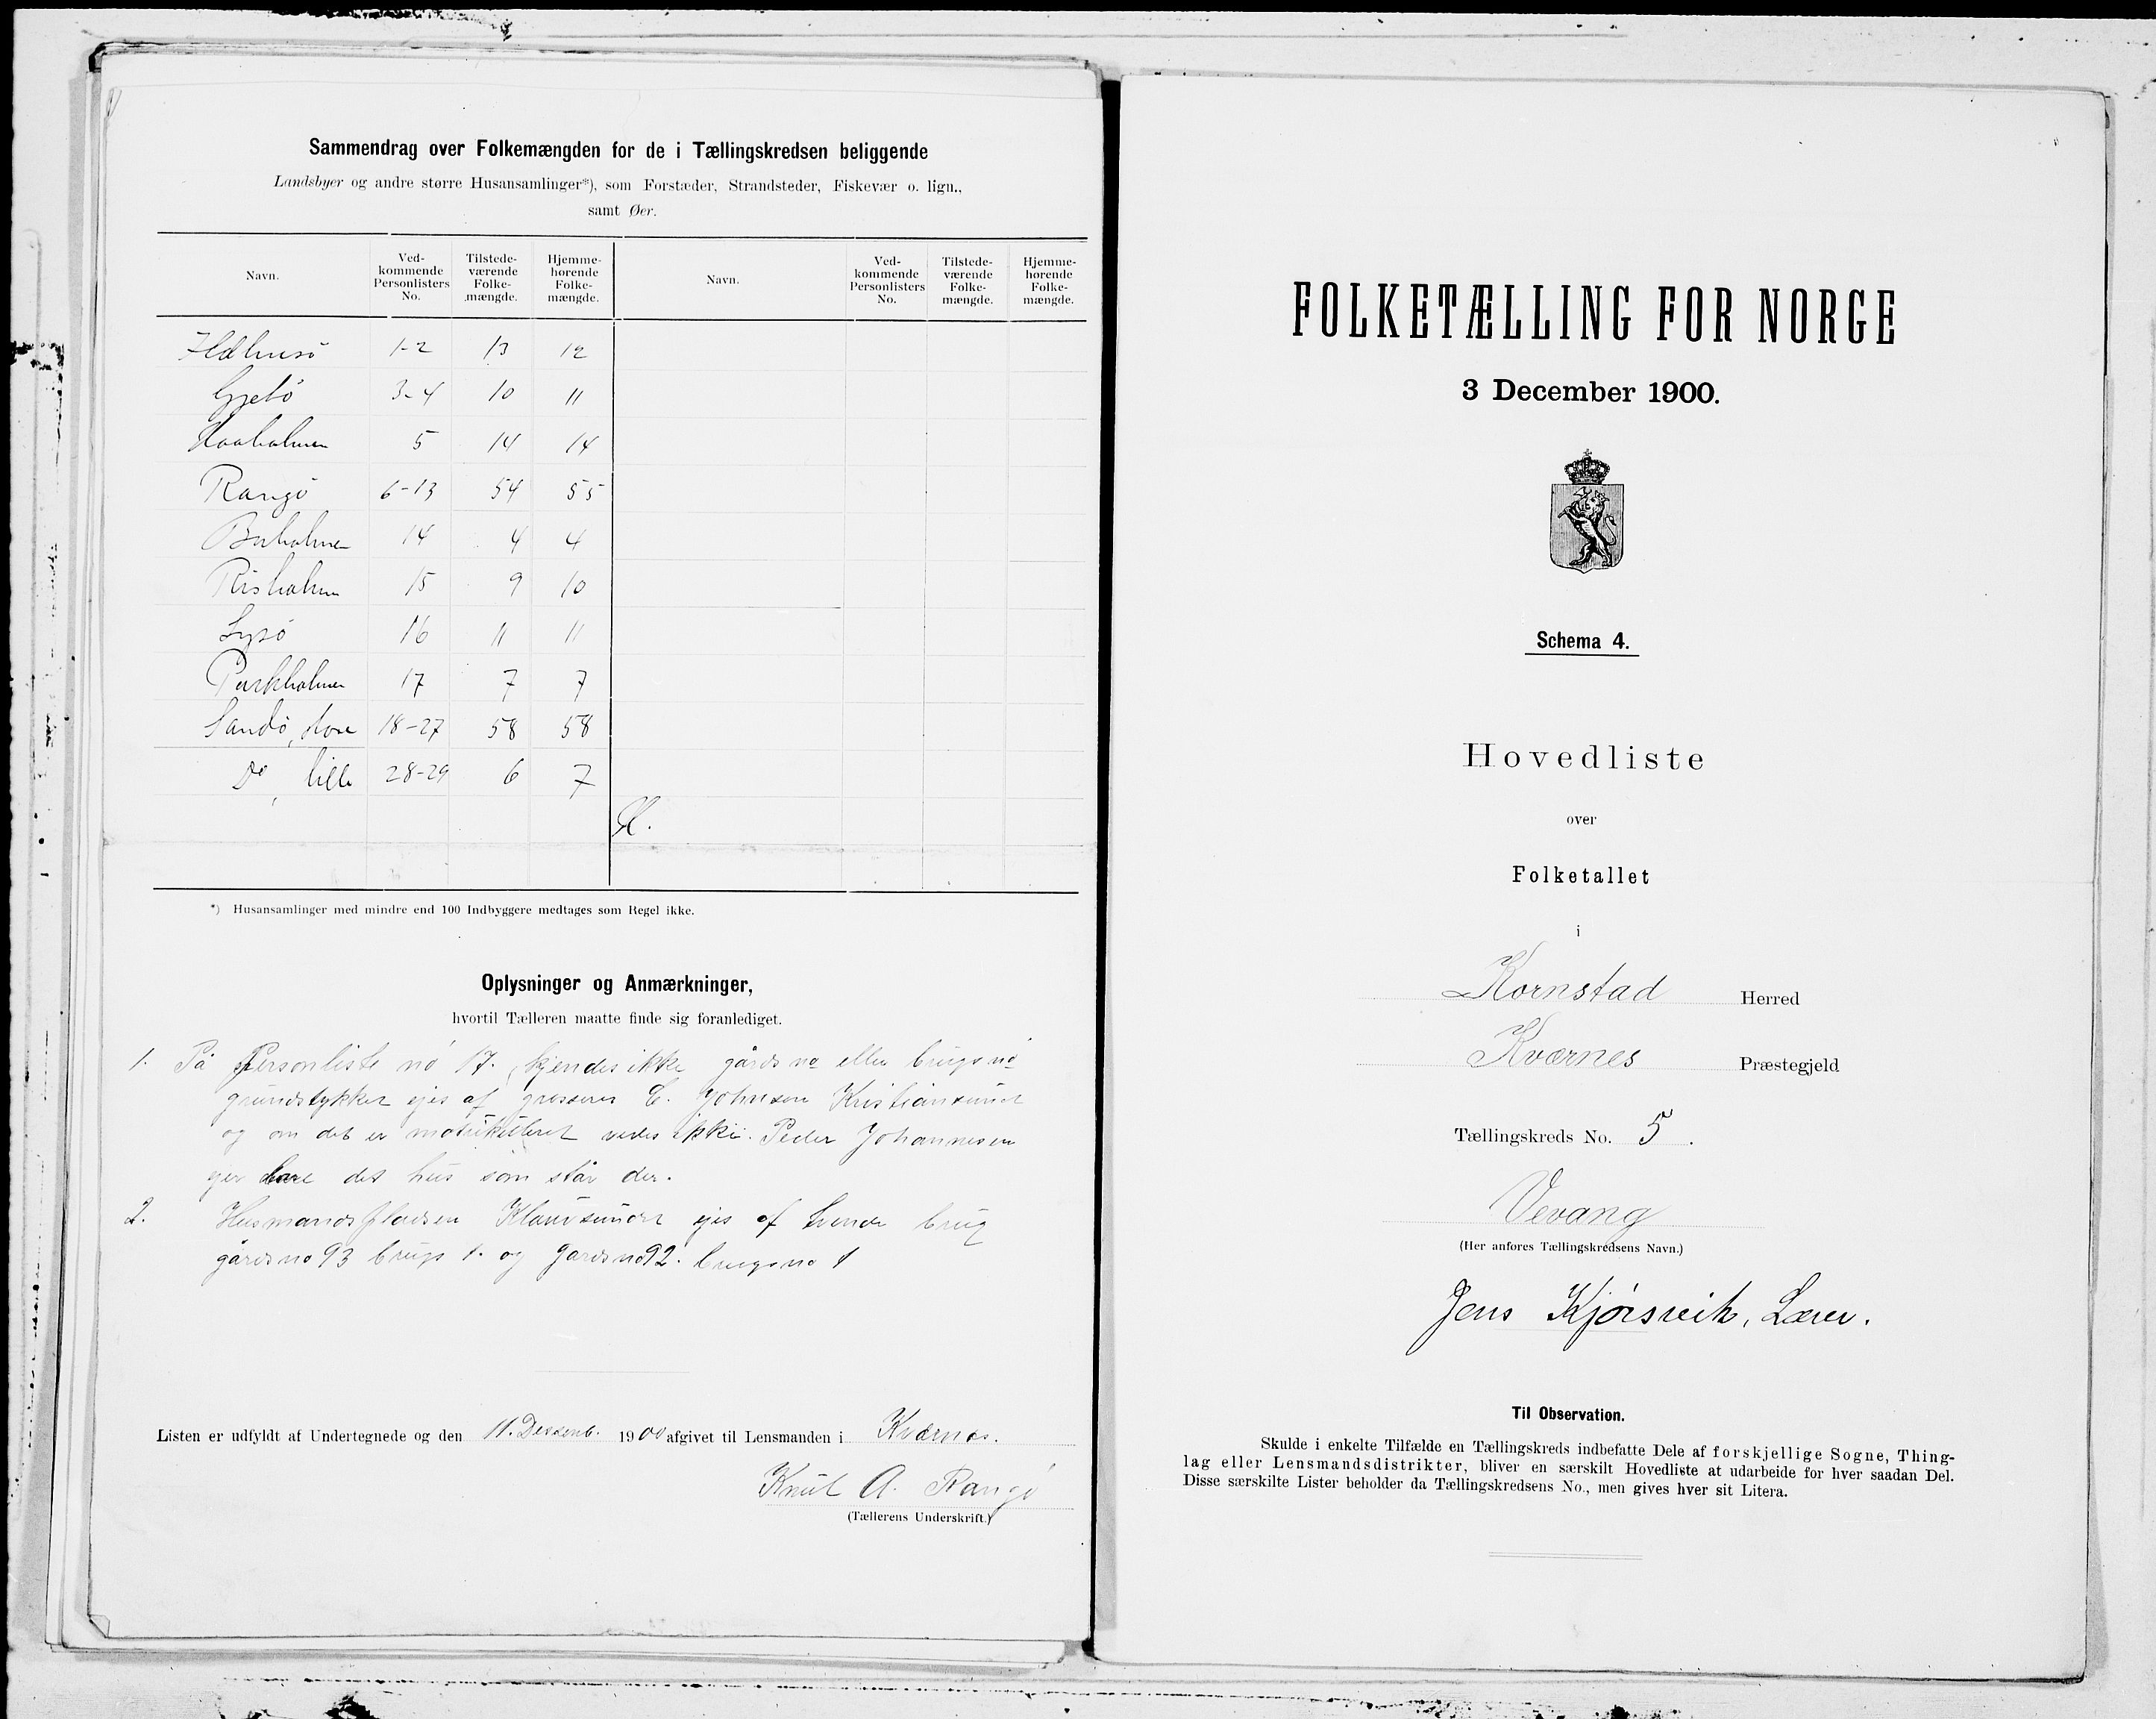 Sammendrag over Folkemængden for de i Tællingskredsen beliggende
Landsbyer og andre større Husansamlinger*), som Forstæder, Strandsteder, Fiskevær o. lign.,
samt Øer.
Navn. Ved-kommende Personlisters No. Tilstede-værende Folke-mængde. Hjemme-hørende Folke-mængde. Navn. Ved-kommende Personlisters No. Tilstede-værende Folke-mængde. Hjemme-hørende Folke-mængde.
Ildhusø 1-2 13 12
Gjetø 3-4 10 11
Haaholmen 5 14 14
Rangø 6-13 54 55
14 4 4
Risholmen 15 9 10
Lysø 16 11 11
Purkholmen 17 7 7
Sandø, store 18-27 58 58
Do, lille 28-29 6 7
*) Husansamlinger med mindre end 100 Indbyggere medtages som Regel ikke.
Oplysninger og Anmærkninger,
hvortil Tælleren maatte finde sig foranlediget.
1. På Personliste no 17. kjendes ikke gårds no eller brugs no
grundstykket ejes af grosserer C. Johnsen Kristiansund
og om det er matrikuleret vides ikke. Peder Johannesen
ejer bare det hus som står der.
2. Husmandspladsen ejes af brug
gårdsno 93 brugs 1. og gardsno 92. brugsno 1
Listen er udfyldt af Undertegnede og den 11. Desemb. 1900 afgivet til Lensmanden i Kværnes.
Knut A. Rangø
(Tællerens Underskrift.)
FOLKETÆLLING FOR NORGE
3 December 1900.
Schema 4.
Hovedliste
over
Folketallet
i
Kornstad Herred
Kværnes Præstegjeld
Tællingskreds No. 5.
Vevang
(Her anføres Tællingskredsens Navn.)
Jens Kjørsvik, Lærer.
Til Observation.
Skulde i enkelte Tilfælde en Tællingskreds indbefatte Dele af forskjellige Sogne, Thing-
lag eller Lensmandsdistrikter, bliver en særskilt Hovedliste at udarbeide for hver saadan Del.
Disse særskilte Lister beholder da Tællingskredsens No., men gives hver sit Litera.